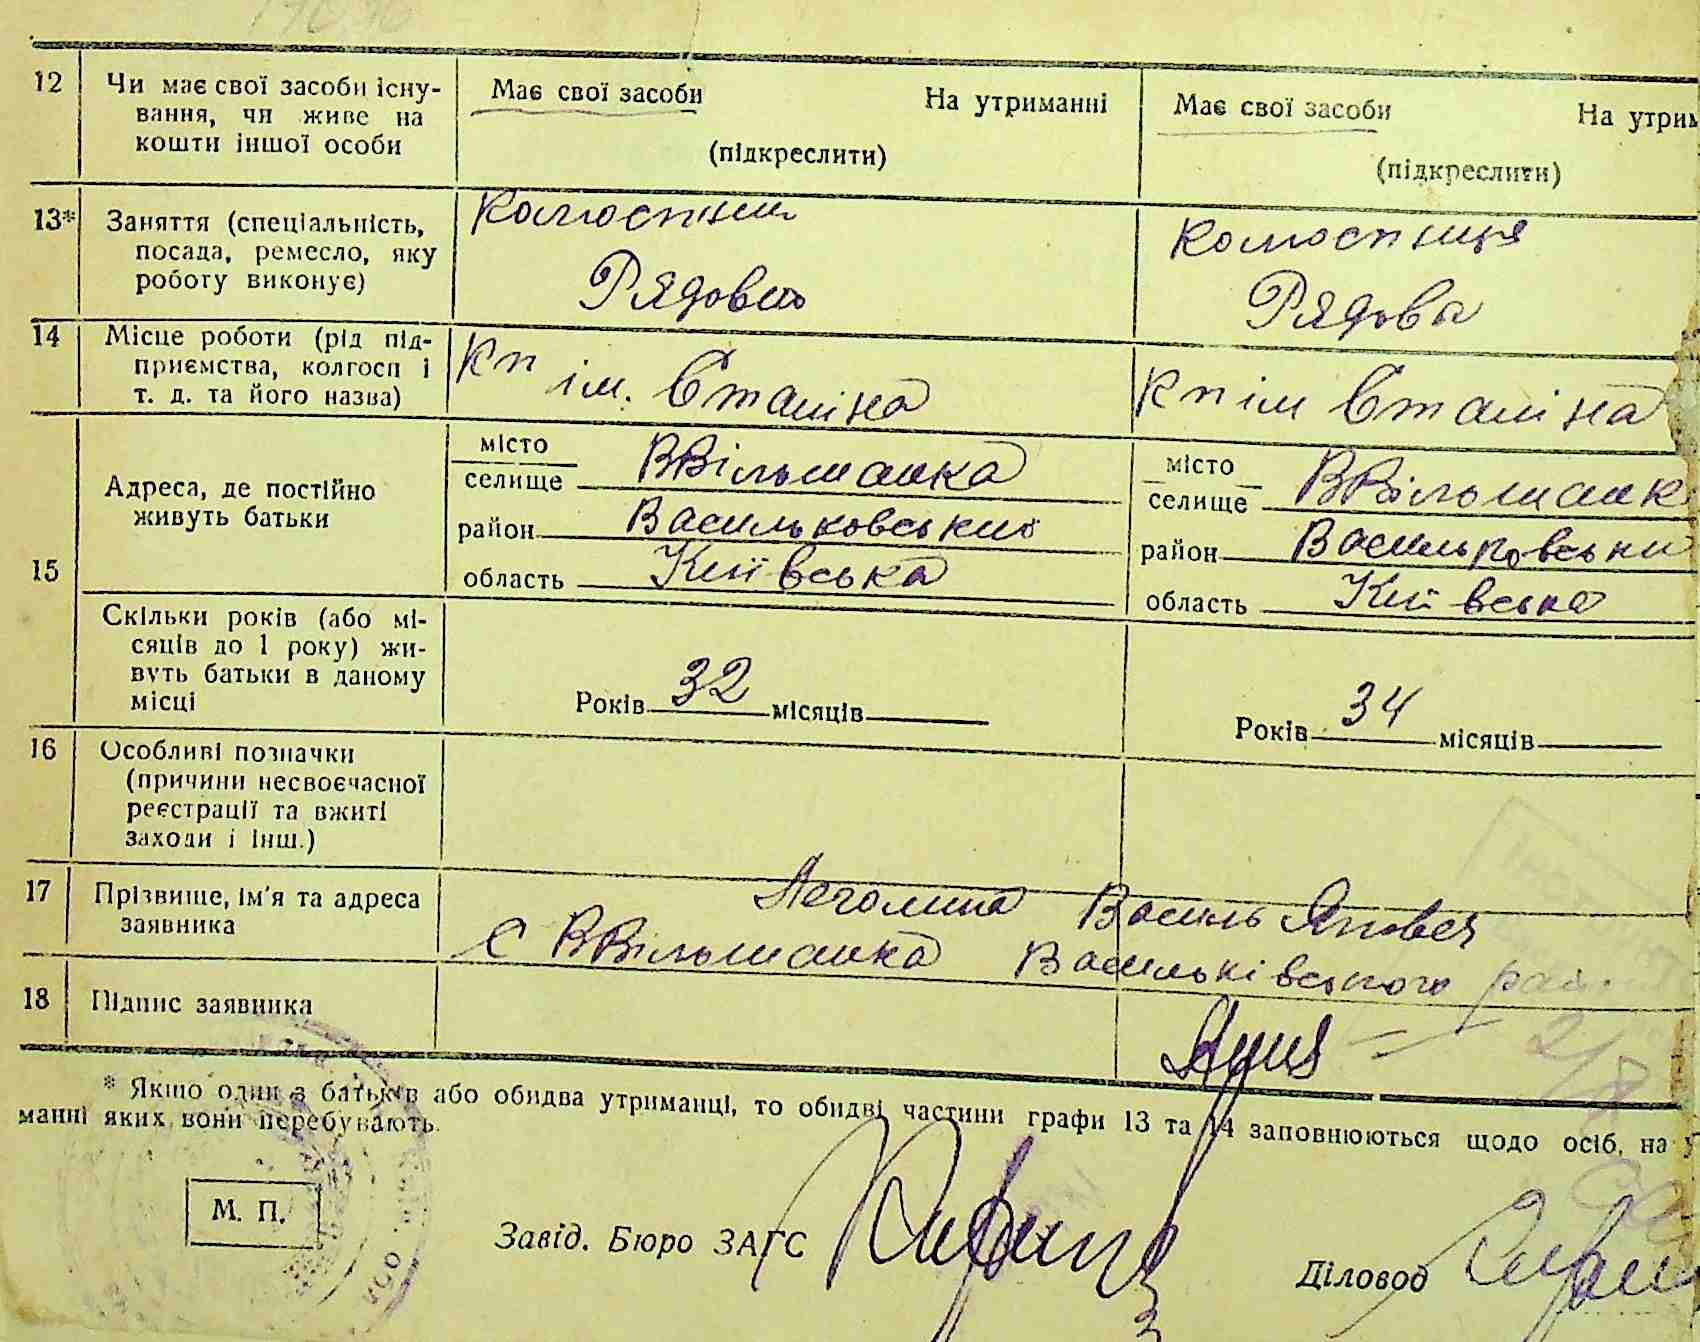 12 Чи має свої засоби існу-
вання, чи живе на
кошти іншої особи
Має свої засоби На утриманні
(підкреслити)
Має свої засоби На утрим
(підкреслити)
13* Заняття (спеціальність,
посада, ремесло, яку
роботу виконує)
Колгоспник
Рядовий
Колгоспниця
Рядова
14 Місце роботи (рід під-
приємства, колгосп і
т. д. та його назва)
Кп ім. Сталіна
Кп ім Сталіна
15 Адреса, де постійно
живуть батьки
місто
селище ВВільшанка
район Васильковський
область Київська
місто
селище ВВільшанк
район Васильковськи
область Київська
Скільки років (або мі-
сяців до 1 року) жи-
вуть батьки в даному
місці
Років 32 місяців
Років 34 місяців
16 Особливі позначки
(причини несвоєчасної
реєстрації та вжиті
заходи і інш.)
17 Прізвище, ім'я та адреса
заявника
Василь
с ВВільшанка Васильківського рай
18 Підпис заявника
* Якщо один з батьків або обидва утриманці, то обидві частини графи 13 та 14 заповнюються щодо осіб, на у
манні яких вони перебувають.
М. П.
Завід. Бюро ЗАГС
Діловод